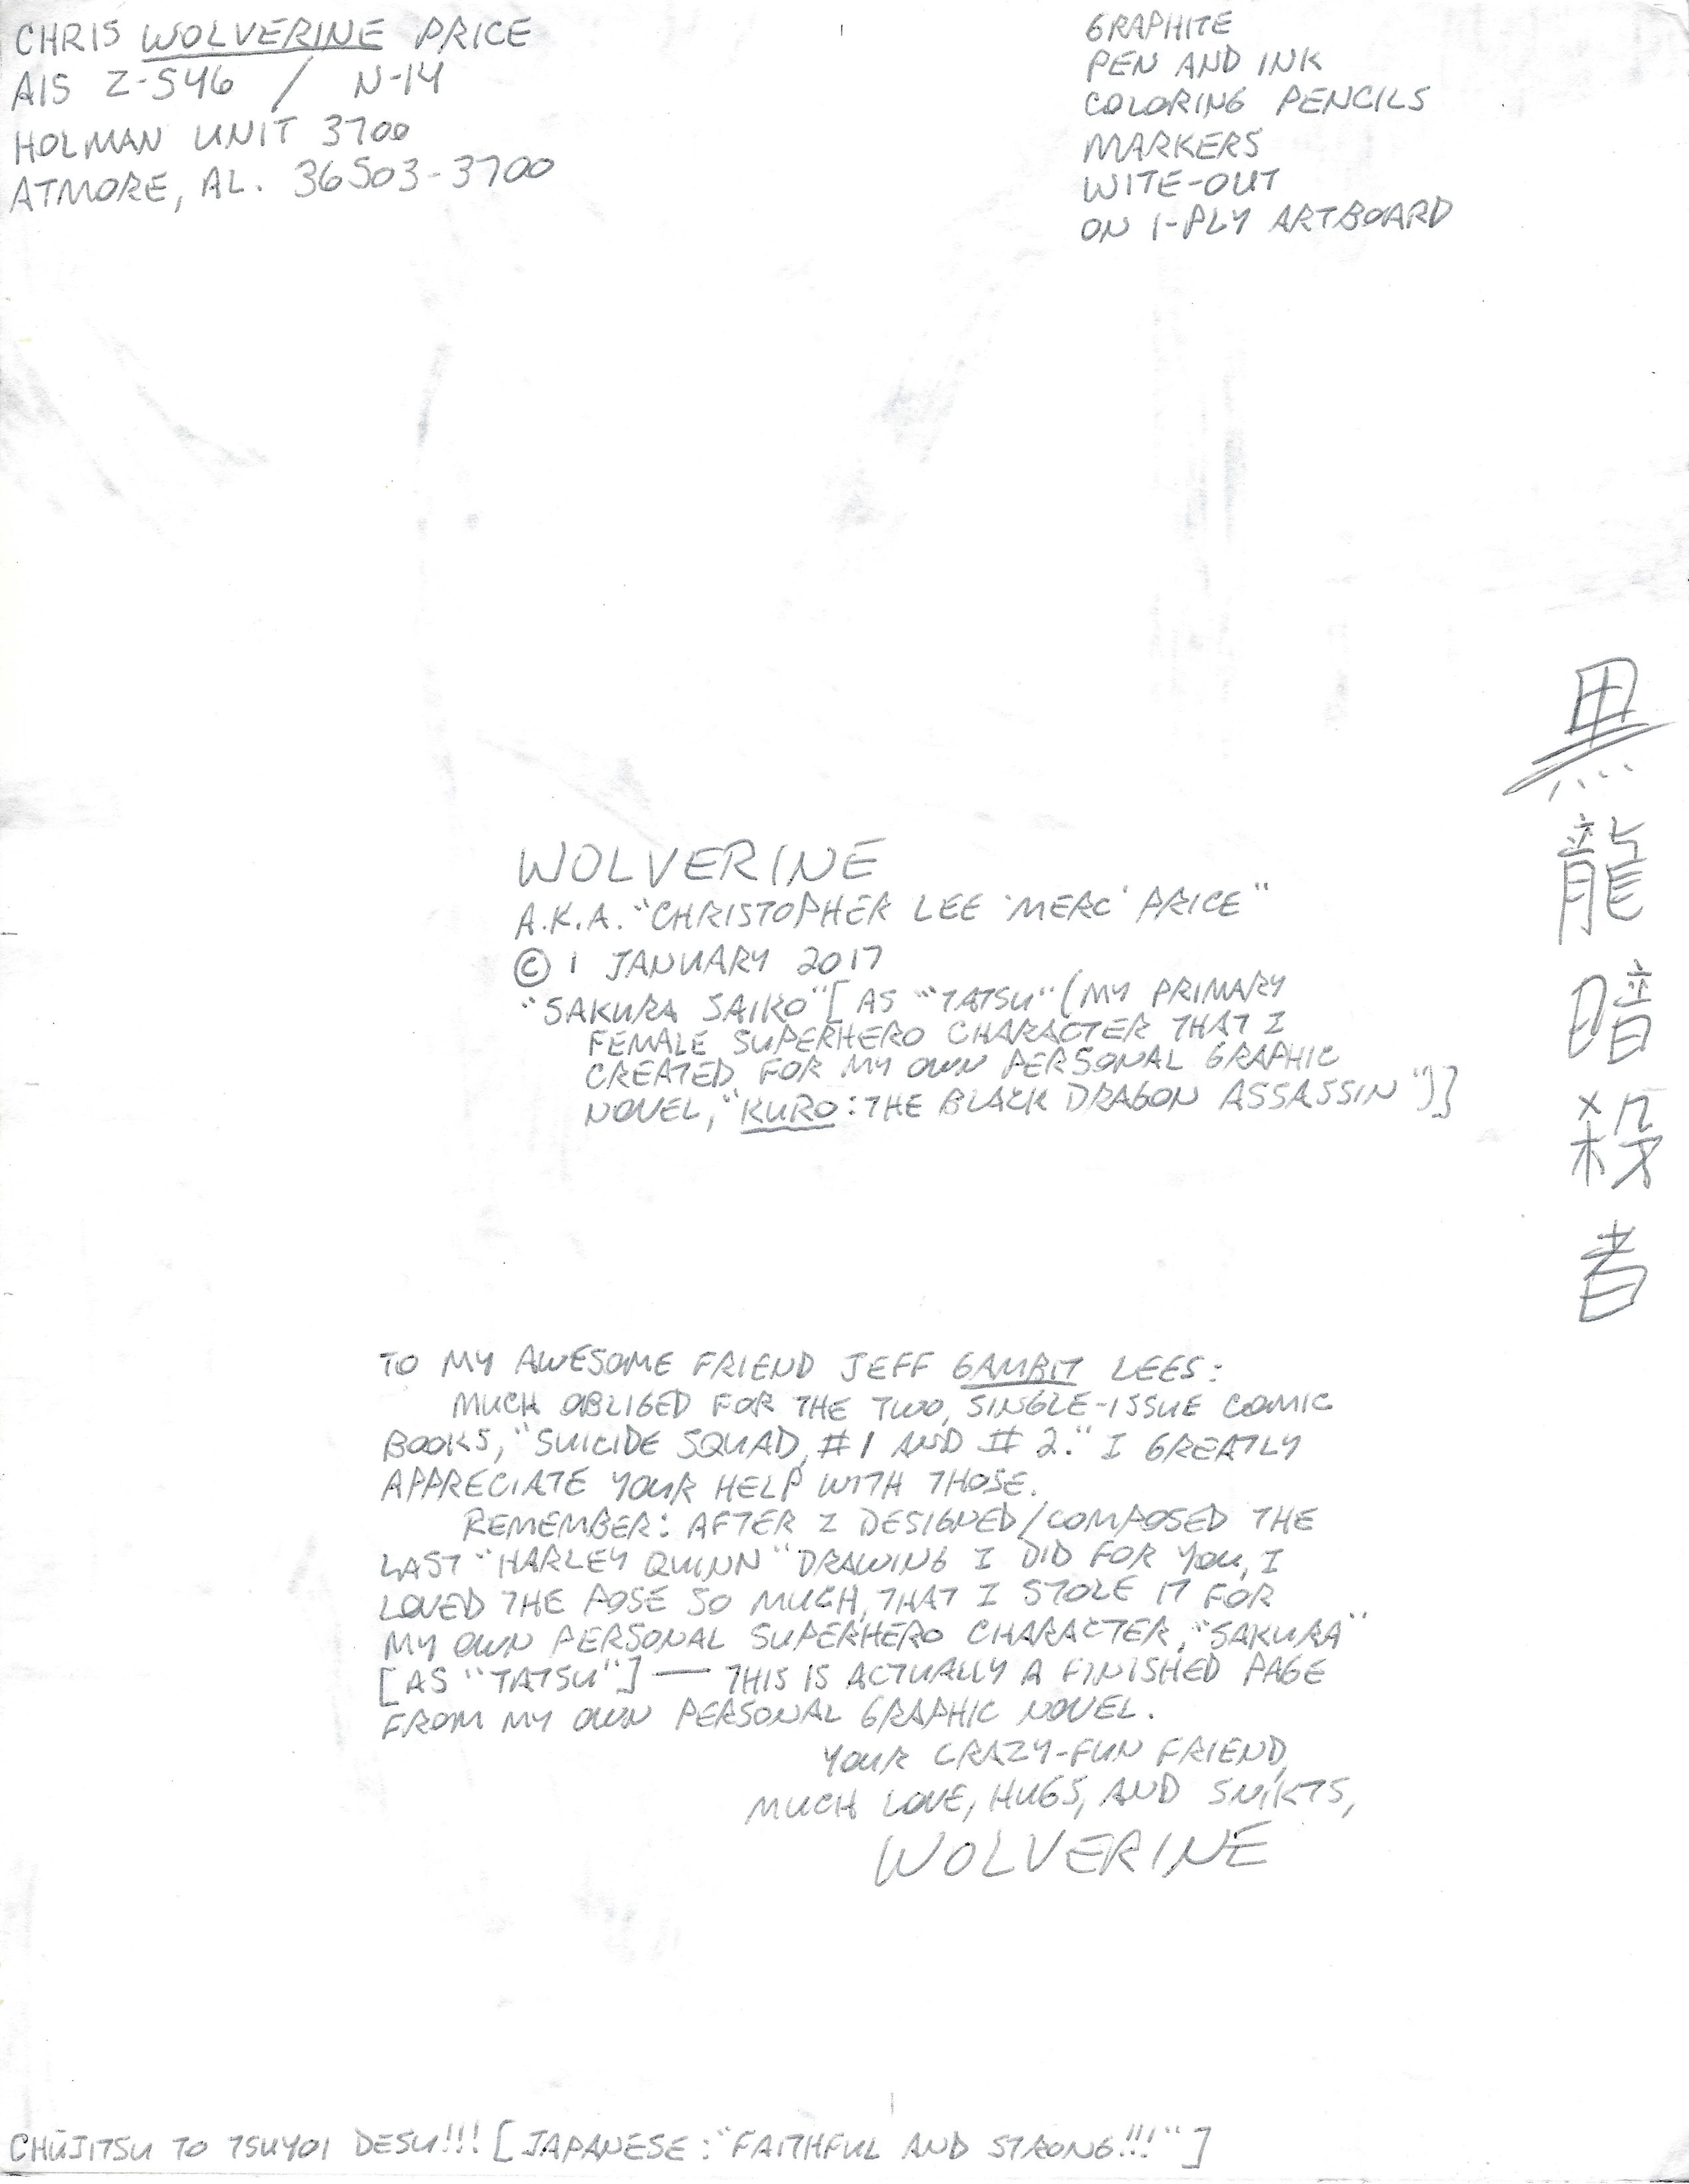 CHRIS WOLVERINE PRICE
AIS Z-546 / N-14
HOLMAN UNIT 3700
ATMORE, AL. 36503-3700
GRAPHITE
PEN AND INK
COLORING PENCILS
MARKERS
WITE-OUT
ON 1-PLY ARTBOARD
黒龍暗殺者
WOLVERINE
A.K.A. "CHRISTOPHER LEE 'MERC' PRICE"
© 1 JANUARY 2017
"SAKURA SAIKO" [AS ""TATSU" (MY PRIMARY
FEMALE SUPERHERO CHARACTER THAT I
CREATED FOR MY OWN PERSONAL GRAPHIC
NOVEL, "KURO: THE BLACK DRAGON ASSASSIN")]
TO MY AWESOME FRIEND JEFF GAMBIT LEES:
MUCH OBLIGED FOR THE TWO, SINGLE-ISSUE COMIC
BOOKS, "SUICIDE SQUAD, #1 AND #2." I GREATLY
APPRECIATE YOUR HELP WITH THOSE.
REMEMBER: AFTER I DESIGNED/COMPOSED THE
LAST "HARLEY QUINN" DRAWING I DID FOR YOU, I
LOVED THE POSE SO MUCH, THAT I STOLE IT FOR
MY OWN PERSONAL SUPERHERO CHARACTER, "SAKURA"
[AS "TATSU"] — THIS IS ACTUALLY A FINISHED PAGE
FROM MY OWN PERSONAL GRAPHIC NOVEL.
YOUR CRAZY-FUN FRIEND,
MUCH LOVE, HUGS, AND SNIKTS,
WOLVERINE
CHŪJITSU TO TSUYOI DESU!!! [JAPANESE: "FAITHFUL AND STRONG!!!"]